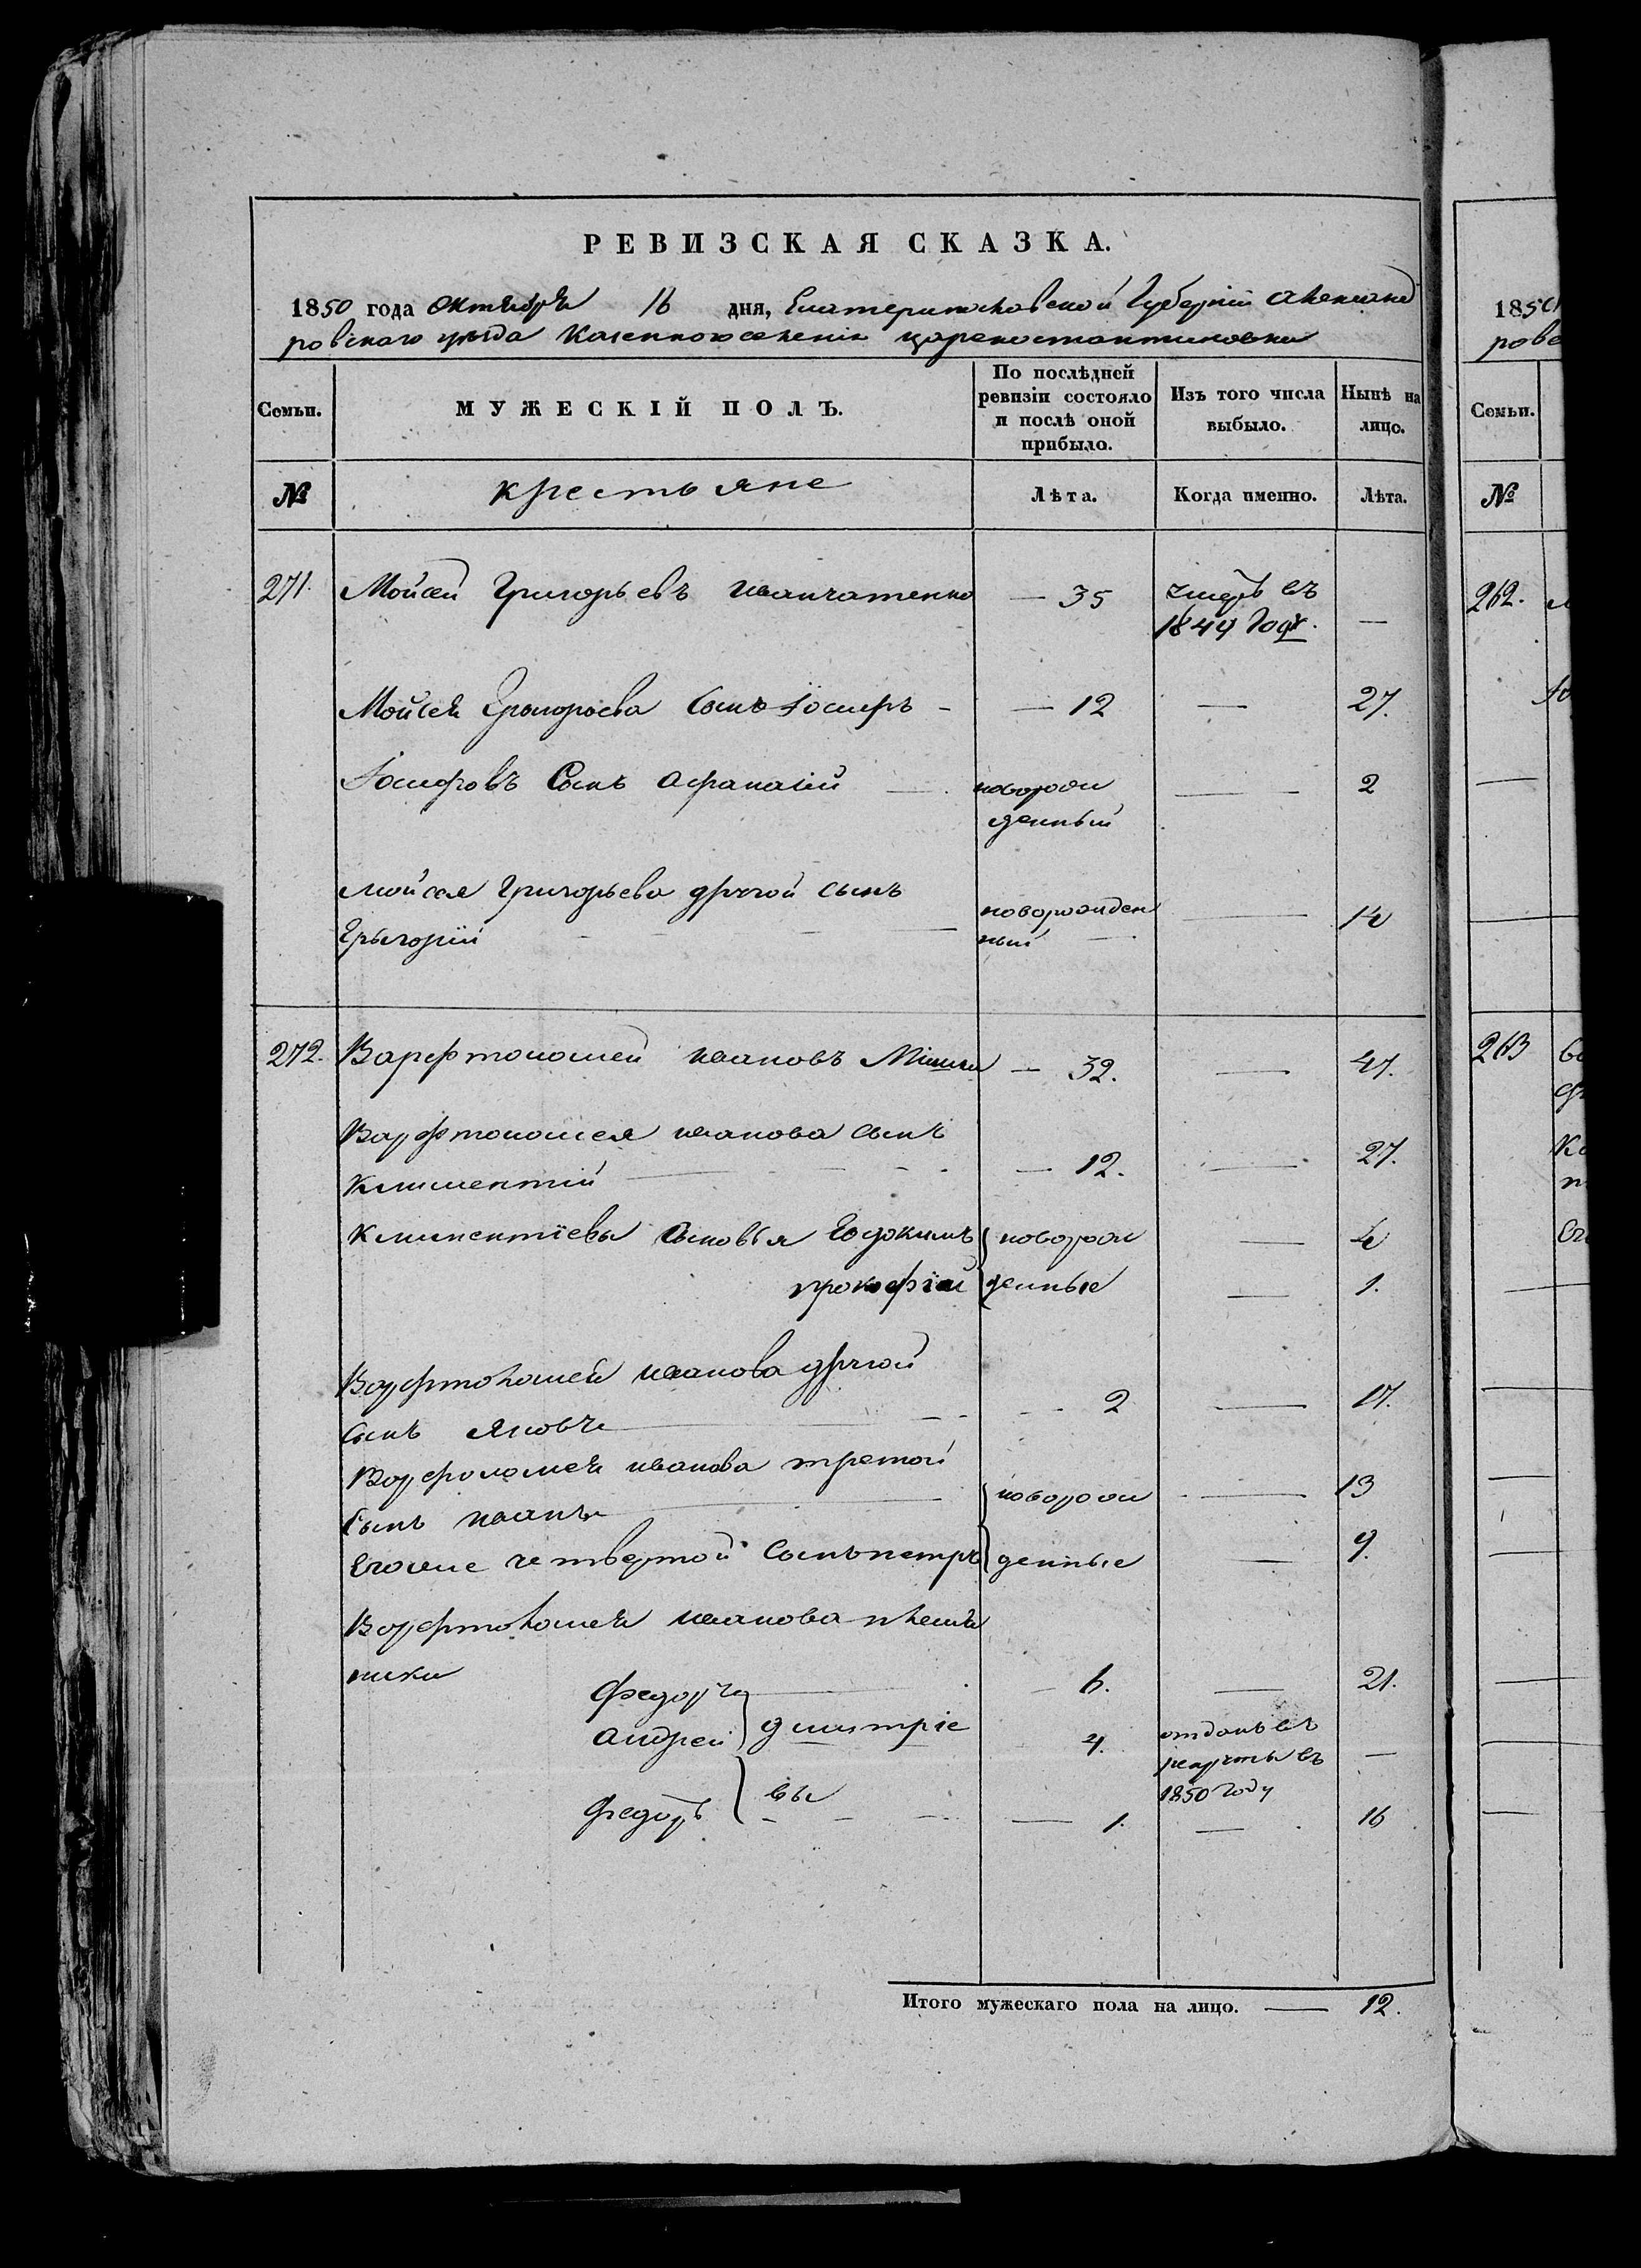 РЕВИЗСКАЯ СКАЗКА.
1850 года октября 16 дня, Екатеринославской Губерніи александ
ровскаго уезда Казенного селенія цареконстантиновки
Семьи. МУЖЕСКІЙ ПОЛЪ. По послѣдней ревизіи состояло и послѣ оной прибыло. Изъ того числа выбыло. Нынѣ на лицо.
№ крестьяне Лѣта. Когда именно. Лѣта.
271. Мойсей Григорьевъ — 35 умеръ въ
1849 году. —
Мойсея Григорьева сынъ Іосифъ — 12 — 27.
Іосифовъ Сынъ афанасій — новорож — 2
денный
мойсея Григорьева другой сынъ
Грыгорій — новорожден — 14
ный
272. Варфтоломей ивановъ — 32. — 47.
Варфтоломея иванова сынъ
Климентій — 12. — 27.
Климентіевы сыновья новорож — 4
прокофій денные — 1.
Варфтоломея иванова другой
сынъ яковъ — 2 — 17.
Варфоломея иванова третой
сынъ иванъ — новорож — 13
Егоже четвертой сынъ петръ денные — 9.
Варфтоломея иванова племя
ники
Федоръ — 6. — 21.
андрей дмитріе 4. отданъ въ
рекруты въ —
1850 году
Федоръ вы — 1. — 16
Итого мужескаго пола на лицо. — 12.
1850
рове
Семьи.
№
262.
263